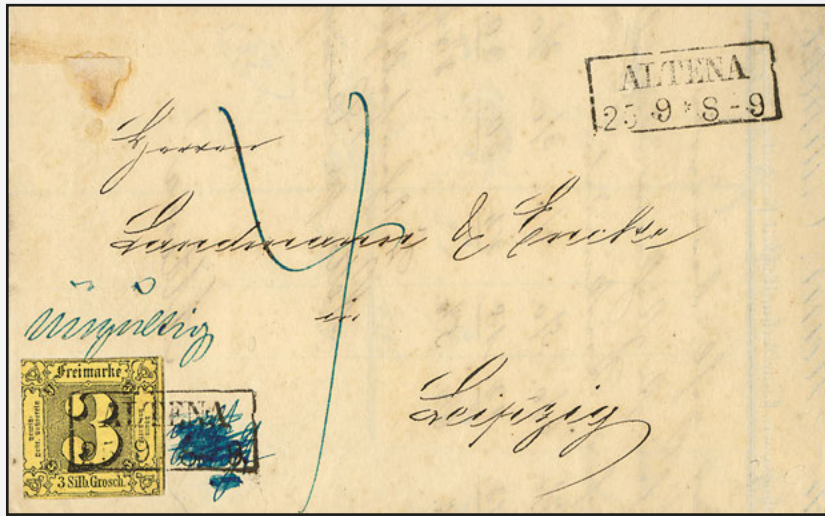 ALTENA
25 9 * 8-9
Herren
Landmann & Encke
in
Leipzig
4
ungültig
Freimarke
3
3 Silb. Grosch.
ALTENA
9